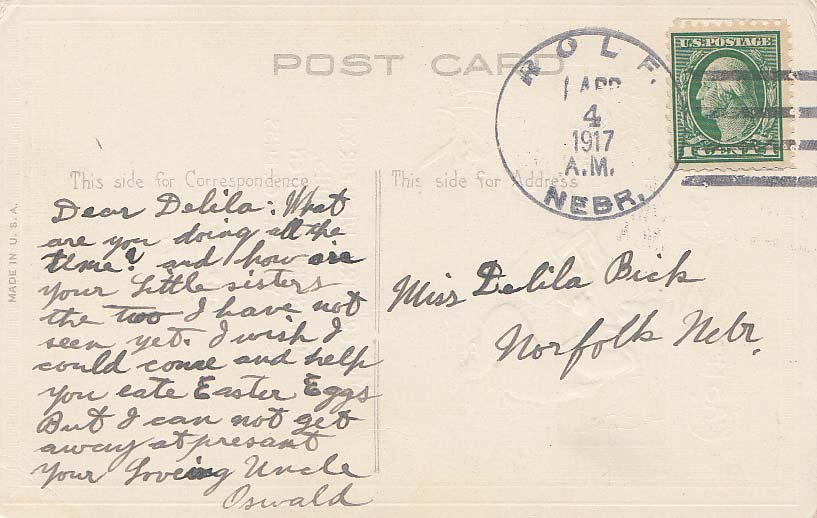 POST CARD
ROLF.
APR
4
1917
A.M.
NEBR.
U.S. POSTAGE
1 CENT 1
This side for Correspondence
This side for Address
MADE IN U.S.A.
Dear Delila: What
are you doing all the
time? and how are
your little sisters
the two I have not
seen yet. I wish I
could come and help
you eate Easter Eggs
But I can not get
away at presant
Your Loveing Uncle
Oswald
Miss Delila Bick
Norfolk Nebr.